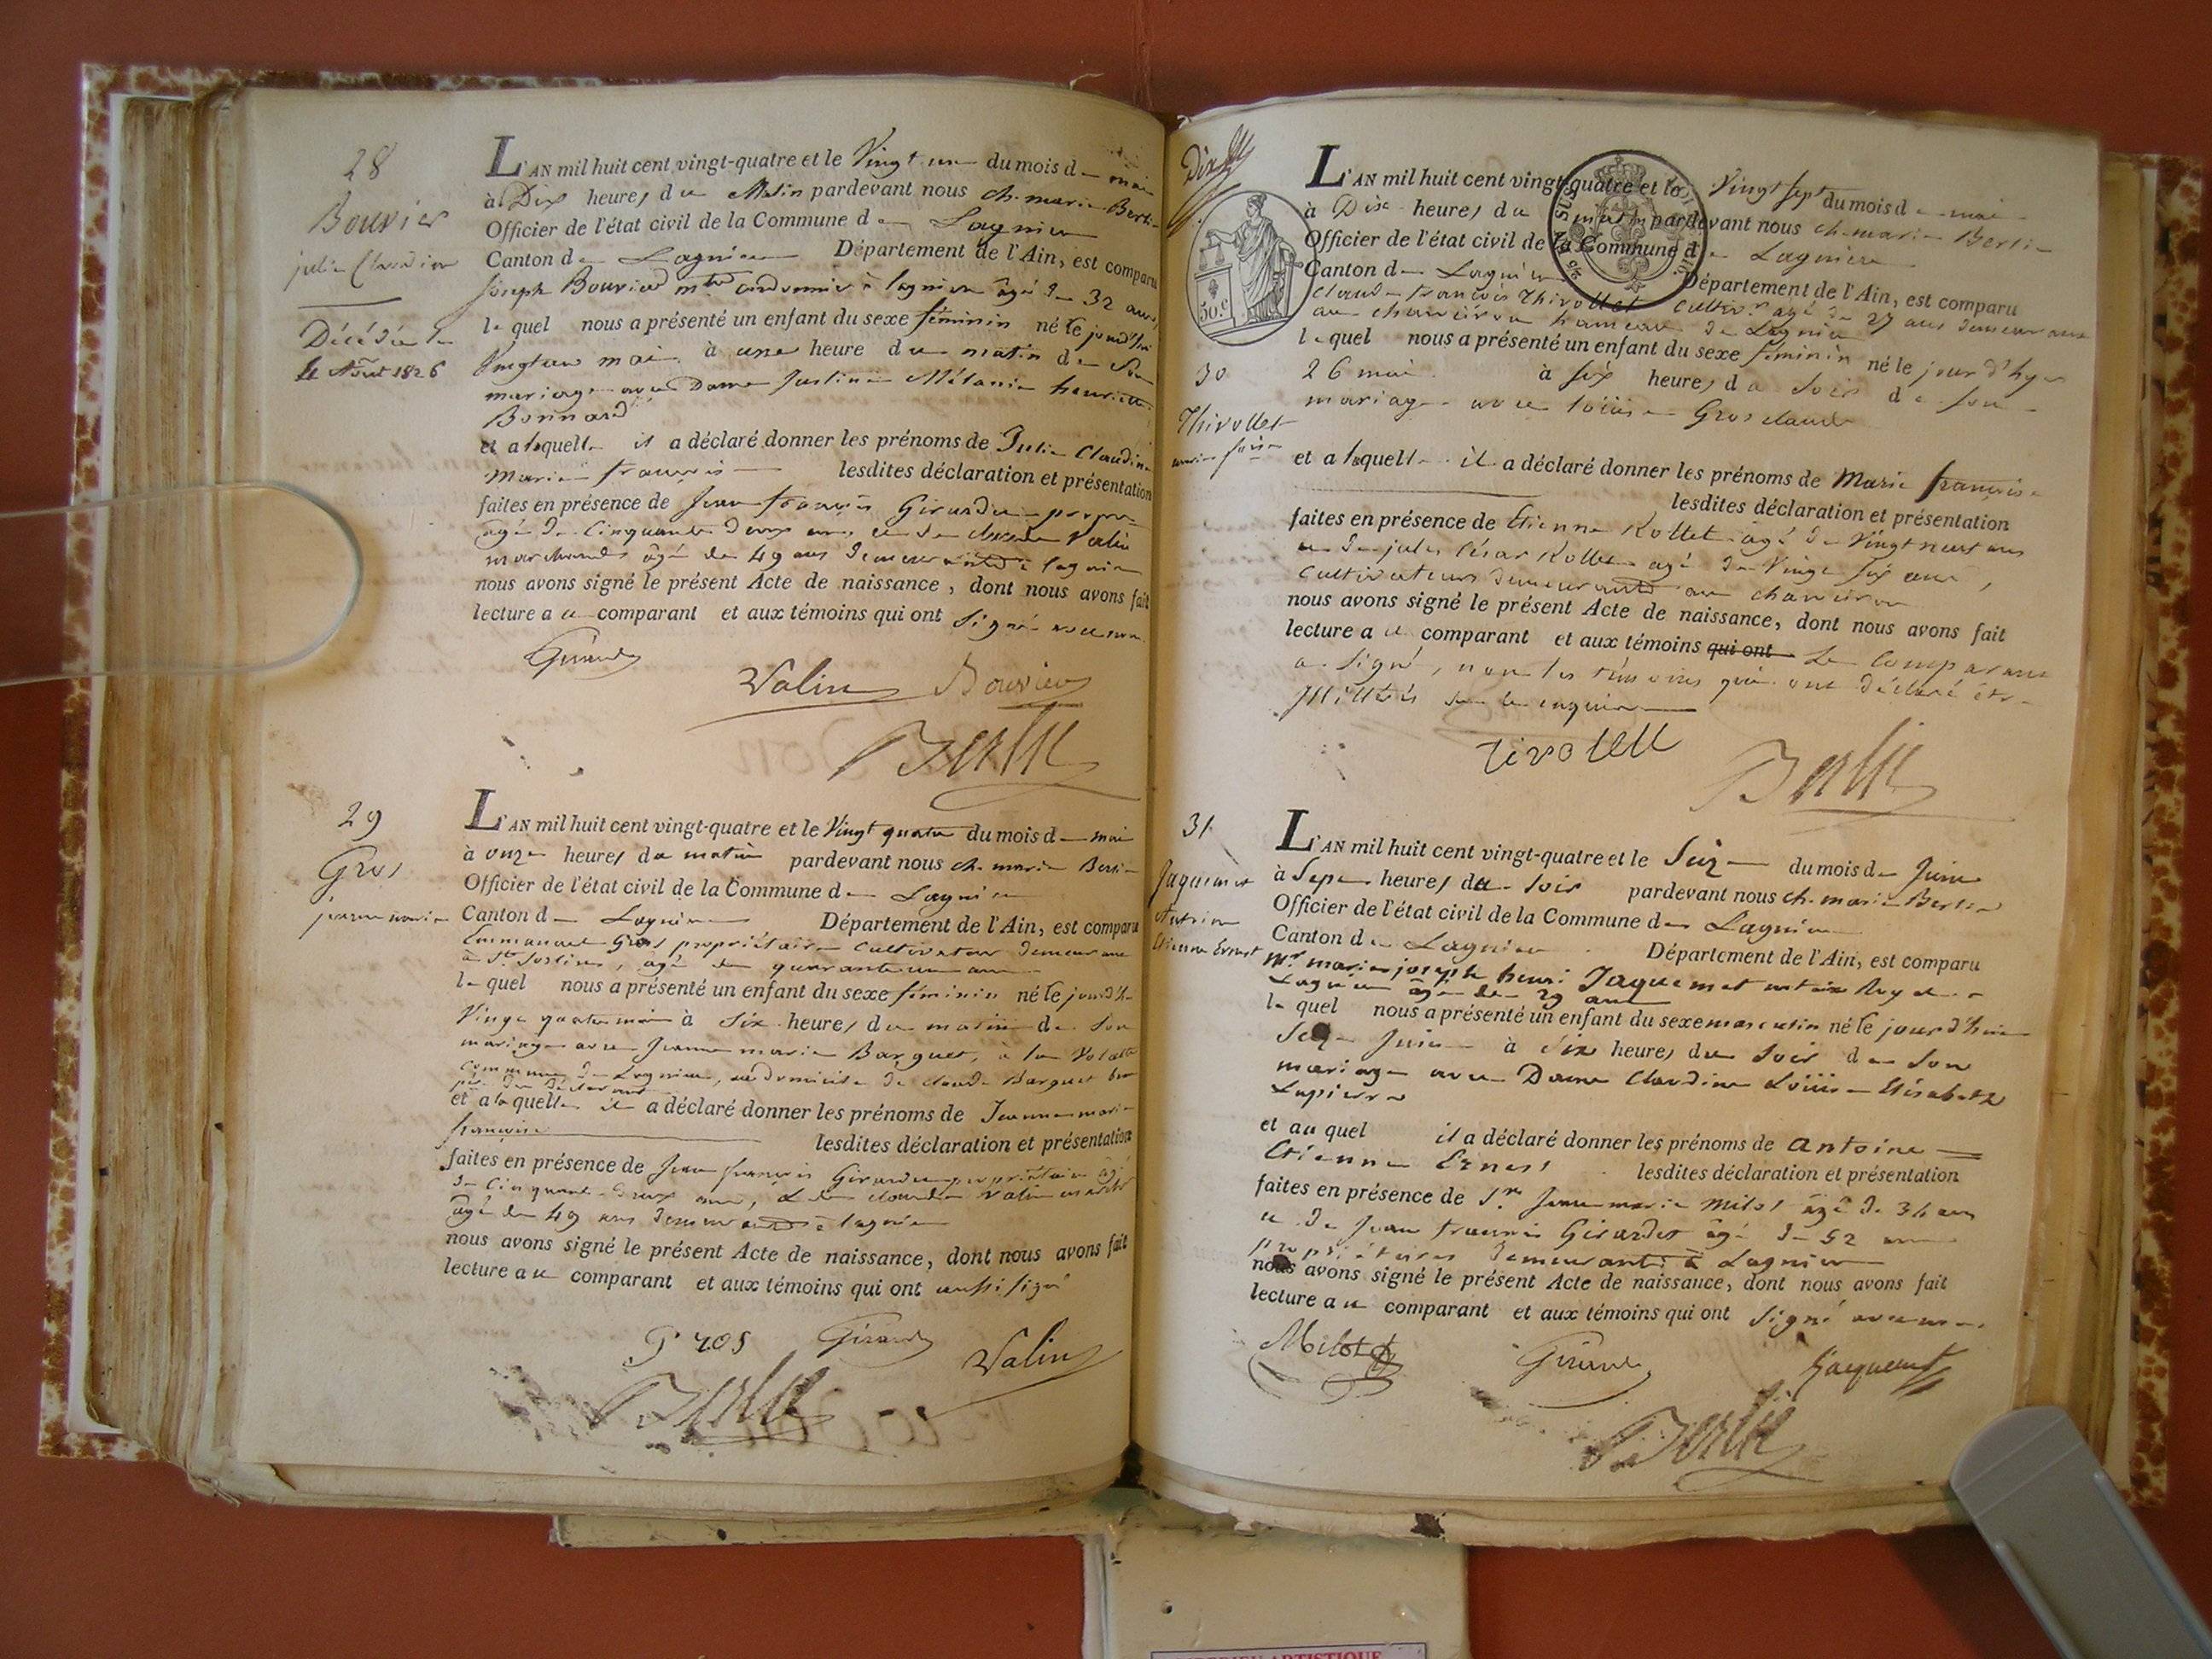 28
Bouvier
julie Claudine
Décédée le
4 Août 1826
L'AN mil huit cent vingt-quatre et le Vingt un du mois de mai
à Dix heures du Matin pardevant nous ch. marie Berlie
Officier de l'état civil de la Commune de Lagnieu
Canton de Lagnieu Département de l'Ain, est comparu
Joseph Bouvier md cordonnier à lagnieu âgé de 32 ans,
lequel nous a présenté un enfant du sexe féminin né le jourd'hui
Vingt un mai à une heure du matin de Son
mariage avec Dame Justine Mélanie henriette
Bonnard
et a laquelle il a déclaré donner les prénoms de Julie Claudine
Marie françoise lesdites déclaration et présentation
faites en présence de Jean françois Girardu propre
âgé de Cinquante deux ans et de claude Valin
marchand âgé de 49 ans demeurants à lagnieu
nous avons signé le présent Acte de naissance, dont nous avons fait
lecture au comparant et aux témoins qui ont Signé avec nous
Valin Bouvier
Berlie
29
Gros
jeanne marie
L'AN mil huit cent vingt-quatre et le Vingt quatre du mois de mai
à onze heures du matin pardevant nous ch. marie Berlie
Officier de l'état civil de la Commune de Lagnieu
Canton de Lagnieu Département de l'Ain, est comparu
Emmanuel Gros propriétaire Cultivateur demeurant
à St. Sorlin, âgé de quarante un ans
lequel nous a présenté un enfant du sexe féminin né le jourd'h
Vingt quatre mai à Six heures du matin de Son
mariage avec Jeanne marie Barquet, à la
Commune de Lagnieu, au domicile de claude Barquet beau
père du déclarant
et a laquelle il a déclaré donner les prénoms de Jeanne marie
françoise lesdites déclaration et présentation
faites en présence de Jean françois Girardu propriétaire âgé
de Cinquante deux ans, et de claude Valin
âgé de 49 ans demeurants à lagnieu
nous avons signé le présent Acte de naissance, dont nous avons fait
lecture au comparant et aux témoins qui ont aussi signé
Gros Valin
Berlie
50.c
30
Thivollet
marie foise
L'AN mil huit cent vingt-quatre et le Vingt Sept du mois de mai
à Dix heures du matin pardevant nous ch. marie Berlie
Officier de l'état civil de la Commune de Lagnieu
Canton de Lagnieu Département de l'Ain, est comparu
claude françois Thivollet cultivr. agé de 27 ans demeurant
au hameau de Lagnieu
lequel nous a présenté un enfant du sexe féminin né le jour d'hyer
26 mai à six heures du Soir de son
mariage avec loüise Gros claude
et a laquelle il a déclaré donner les prénoms de Marie françoise
lesdites déclaration et présentation
faites en présence de Etienne Rollet âgé de Vingt neuf ans
et de jules César Rollet agé de Vingt six ans,
cultivateurs demeurants au
nous avons signé le présent Acte de naissance, dont nous avons fait
lecture au comparant et aux témoins qui ont Le Comparant
a Signé, non les témoins qui ont déclaré être
illitérés de ce enquis
Tivollet
Berlie
31
Jaquemet
Antoine
Etienne Ernest
L'AN mil huit cent vingt-quatre et le Seize du mois de Juin
à Sept heures du Soir pardevant nous ch. marie Berlie
Officier de l'état civil de la Commune de Lagnieu
Canton de Lagnieu Département de l'Ain, est comparu
Mr. marie joseph henri Jaquemet notaire Royal à
Lagnieu âgé de 29 ans
lequel nous a présenté un enfant du sexe masculin né le jourd'hui
Seize Juin à Six heures du Soir de Son
mariage avec Dame Claudine Loüise Elisabeth
Lapierre
et auquel il a déclaré donner les prénoms de antoine
Etienne Ernest lesdites déclaration et présentation
faites en présence de Sr. Jean marie Milot âgé de 34 ans
et de Jean francois Girardu âgé de 52 ans
propriétaires demeurants à Lagnieu
nous avons signé le présent Acte de naissance, dont nous avons fait
lecture au comparant et aux témoins qui ont Signé avec nous
Milot Jaquemet
Berlie
ARTISTIQUE